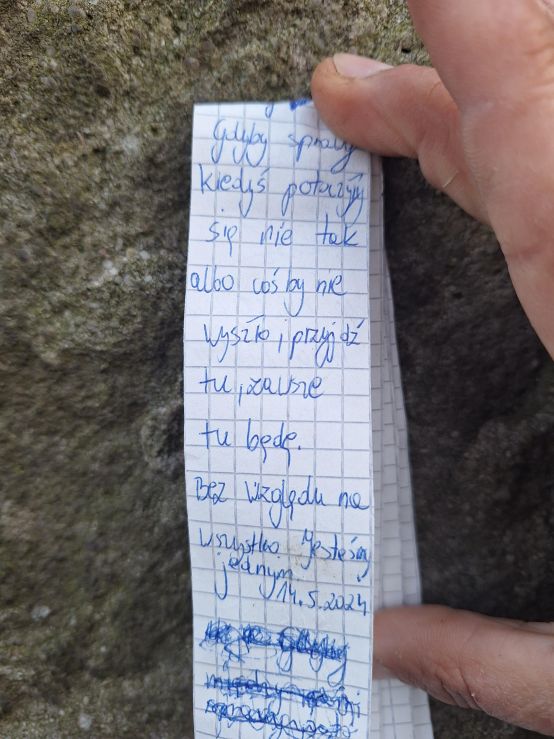 Gdyby sprawy
kiedyś potoczyły
się nie tak
albo coś by nie
wyszło, przyjdź
tu, zawsze
tu będę.
Bez względu na
wszystko jesteśmy
jednym.
14.5.2024